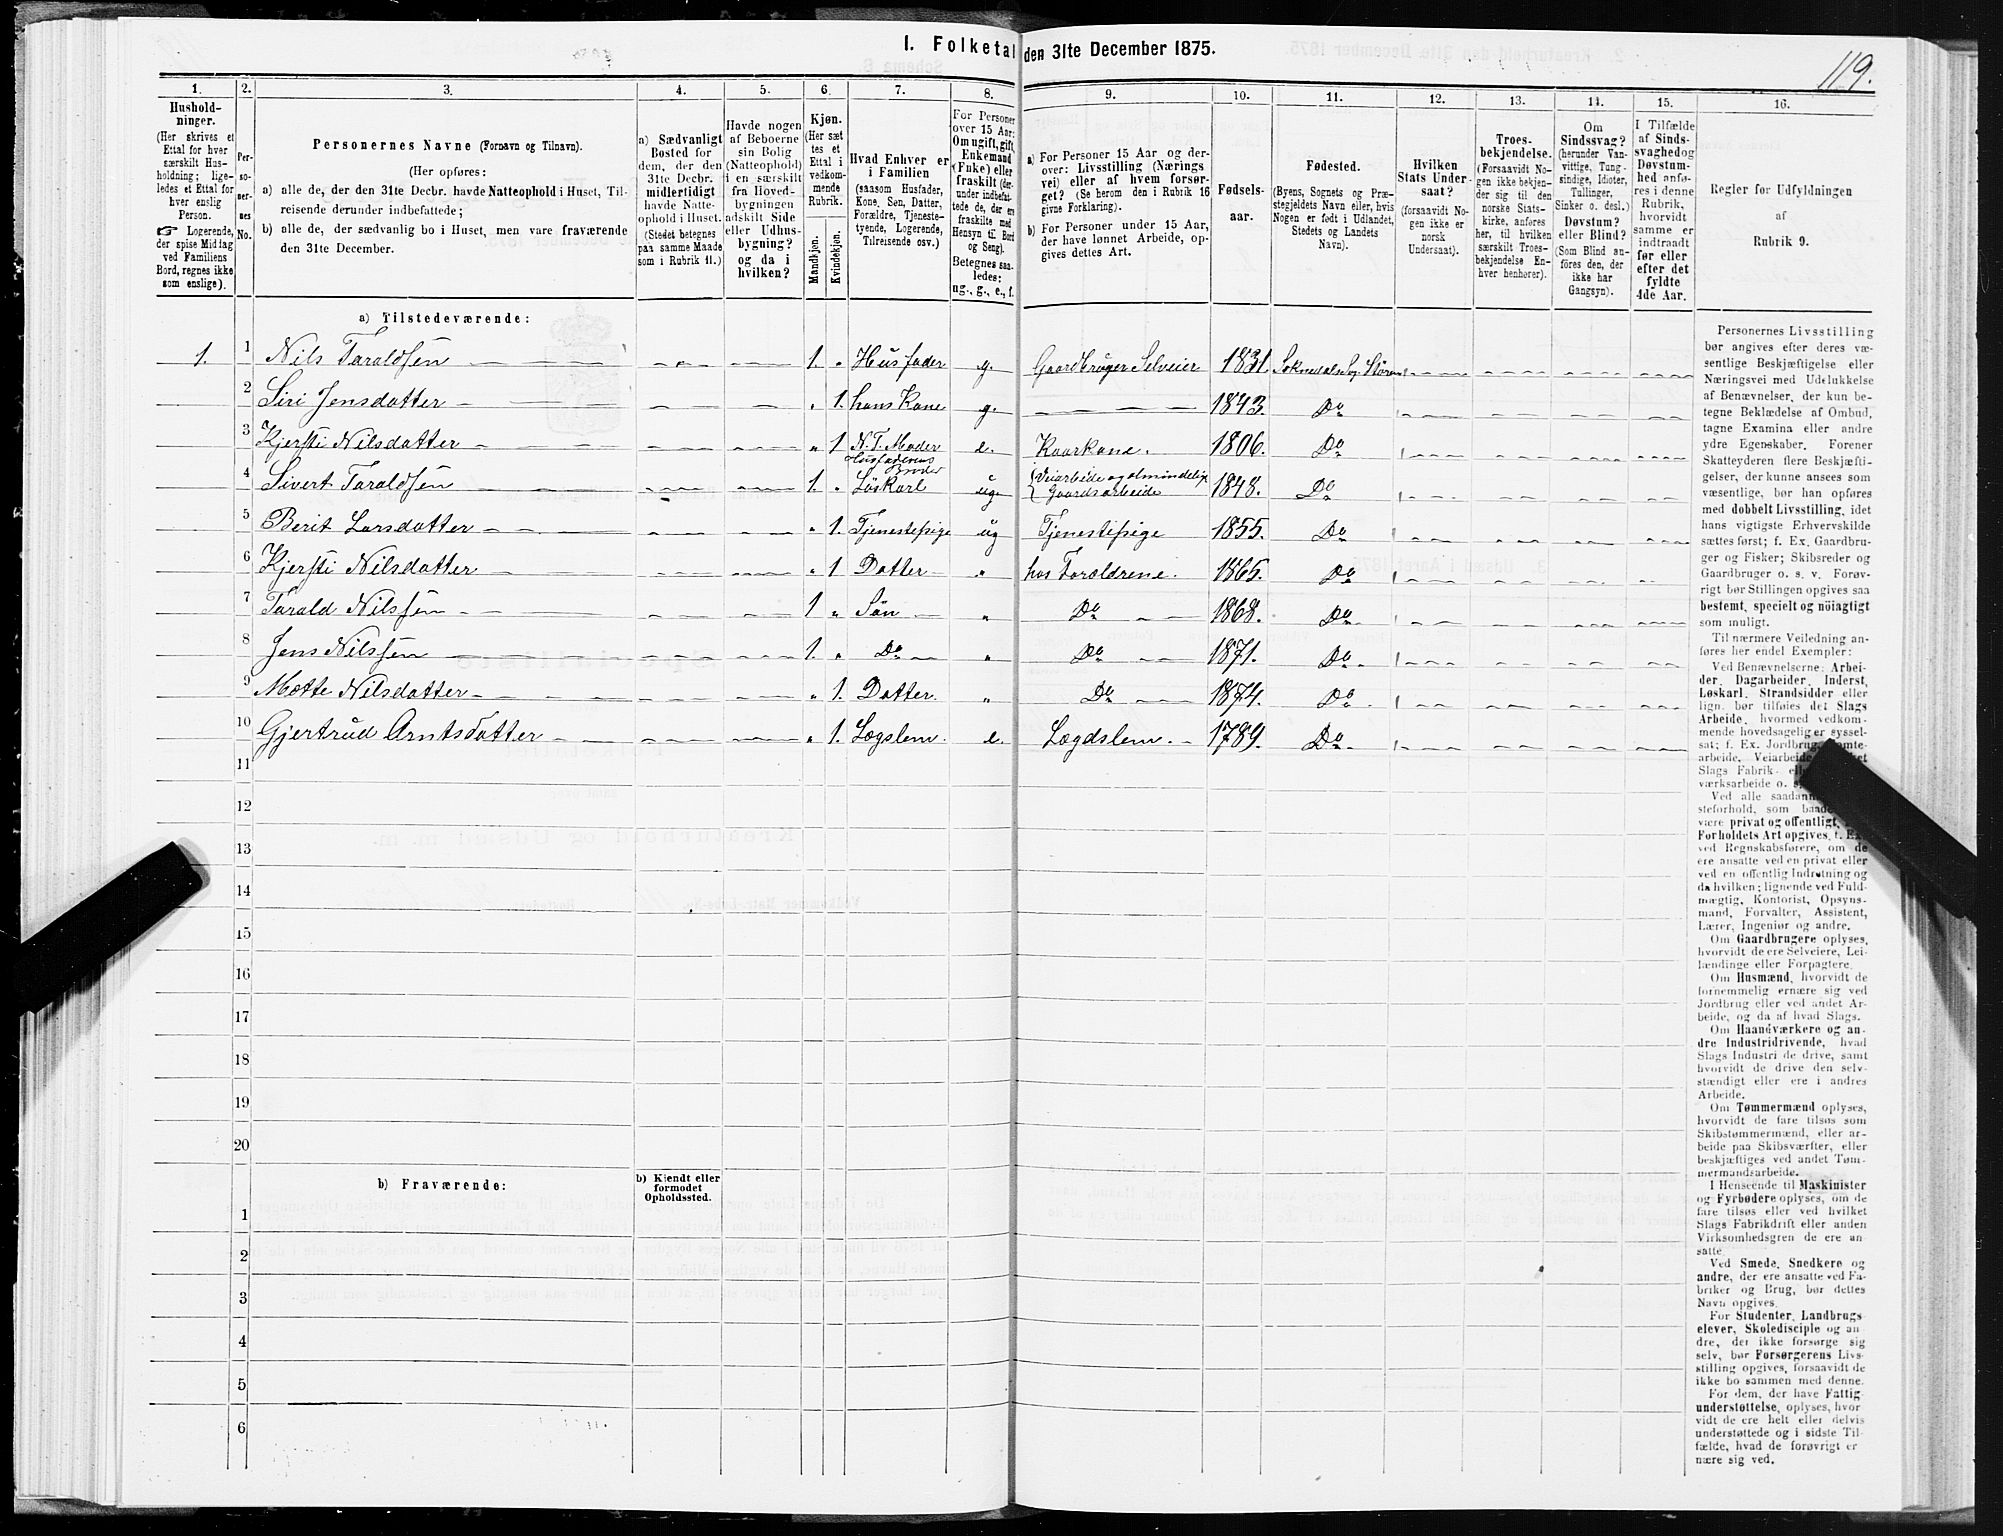 119.
I. Folketal den 31te December 1875.
1. 2. 3. 4. 5. 6. 7. 8. 9. 10. 11. 12. 13. 14. 15. 16.
Hushold-
ninger.
(Her skrives et
Ettal for hver
særskilt Hus-
holdning; lige-
ledes et Ettal for
hver enslig
Person.
☞ Logerende,
der spise Middag
ved Familiens
Bord, regnes ikke
som enslige).
Per-
so-
ner-
nes
No.
Personernes Navne (Fornavn og Tilnavn).
(Her opføres:
a) alle de, der den 31te Decbr. havde Natteophold i Huset, Til-
reisende derunder indbefattede;
b) alle de, der sædvanlig bo i Huset, men vare fraværende
den 31te December.
a) Sædvanligt
Bosted for
dem, der den
31te Decbr.
midlertidigt
havde Natte-
ophold i Huset.
(Stedet betegnes
paa samme Maade
som i Rubrik 11.)
Havde nogen
af Beboerne
sin Bolig
(Natteophold)
i en særskilt
fra Hoved-
bygningen
adskilt Side
eller Udhus-
bygning?
og da i
hvilken?
Kjøn.
(Her sæt
tes et
Ettal i
vedkom-
mende
Rubrik.
Mandkjøn.
Kvindekjøn.
Hvad Enhver er
i Familien
(saasom Husfader,
Kone, Søn, Datter,
Forældre, Tjeneste-
tyende, Logerende,
Tilreisende osv.)
For Personer
over 15 Aar:
Om ugift, gift,
Enkemand
(Enke) eller
fraskilt (der-
under indbefat-
tede de, der ere
fraskilte med
Hensyn til Bord
og Seng).
Betegnes saa-
ledes:
ug., g., e., f.
a) For Personer 15 Aar og der-
over: Livsstilling (Nærings
vei) eller af hvem forsør-
get? (Se herom den i Rubrik 16
givne Forklaring).
b) For Personer under 15 Aar,
der have lønnet Arbeide, op-
gives dettes Art.
Fødsels-
aar.
Fødested.
(Byens, Sognets og Præ-
stegjeldets Navn eller, hvis
Nogen er født i Udlandet,
Stedets og Landets
Navn).
Hvilken
Stats Under-
saat?
(forsaavidt No-
gen ikke er
norsk
Undersaat).
Troes-
bekjendelse.
(Forsaavidt No-
gen ikke bekjen-
der sig til den
norske Stats-
kirke, anføres
her, til hvilken
særskilt Troes-
bekjendelse En-
hver henhører).
Om
Sindssvag?
(herunder Van-
vittige, Tung-
sindige, Idioter,
Tullinger,
Sinker o. desl.)
Døvstum?
eller Blind?
(Som Blind an-
føres den, der
ikke har
Gangsyn).
I Tilfælde
af Sinds-
svaghed og
Døvstum-
hed anfø-
res i denne
Rubrik,
hvorvidt
samme er
indtraadt
før eller
efter det
fyldte
4de Aar.
Regler for Udfyldningen
af
Rubrik 9.
a) Tilstedeværende:
1. 1 Nils Taraldsen 1. Husfader g. Gaardbruger Selveier 1831. Soknedals Sog. Støren
2 Siri Jensdatter 1. hans Kone g. 1843. Do
3 Kjersti Nilsdatter 1 N. T. Moder e. Kaarkone. 1806. Do
4 Sivert Taraldsen 1. Husfaderens Broder Løskarl ug. Veiarbeide og almindelig Gaardsarbeide 1848. Do
5 Berit Larsdatter 1. Tjenestepige ug Tjenestepige 1855. Do
6 Kjersti Nilsdatter 1 Datter hos Forældrene. 1865. Do
7 Tarald Nilssen 1 Søn Do 1868. Do
8 Jens Nilssen 1. Do Do 1871. Do
9 Mette Nilsdatter 1. Datter. Do 1874. Do
10 Gjertrud Arntsdatter 1. Lægslem. e. Lægdslem. 1789. Do
11
12
13
14
15
16
17
18
19
20
b) Fraværende:
b) Kjendt eller
formodet
Opholdssted.
1
2
3
4
5
6
Personernes Livsstilling
bør angives efter deres væ-
sentlige Beskjæftigelse eller
Næringsvei med Udelukkelse
af Benævnelser, der kun be-
tegne Beklædelse af Ombud,
tagne Examina eller andre
ydre Egenskaber. Forener
Skatteyderen flere Beskjæfti-
gelser, der kunne ansees som
væsentlige, bør han opføres
med dobbelt Livsstilling, idet
hans vigtigste Erhvervskilde
sættes først; f. Ex. Gaardbru-
ger og Fisker; Skibsreder og
Gaardbruger o. s. v. Forøv-
rigt bør Stillingen opgives saa
bestemt, specielt og nöiagtigt
som muligt.
Til nærmere Veiledning an-
føres her endel Exempler:
Ved Benævnelserne: Arbei-
der, Dagarbeider, Inderst,
Løskarl, Strandsidder eller
lign. bør tilføies det Slags
Arbeide, hvormed vedkom-
mende hovedsagelig er syssel-
sat; f. Ex. Jordbrug,
arbeide, Veiarbeide
Slags Fabrik-
værksarbeide o.
Ved alle saadan
steforhold, som baade
være privat og offentligt,
Forholdets Art opgives, f. Ex.
ved Regnskabsførere, om de
ere ansatte ved en privat eller
ved en offentlig Indretning og
da hvilken; lignende ved Fuld-
mægtig, Kontorist, Opsyns-
mand, Forvalter, Assistent,
Lærer, Ingeniør og andre.
Om Gaardbrugere oplyses,
hvorvidt de ere Selveiere, Lei-
lændinge eller Forpagtere.
Om Husmænd, hvorvidt de
fornemmelig ernære sig ved
Jordbrug eller ved andet Ar-
beide, og da af hvad Slags.
Om Haandværkere og an-
dre Industridrivende, hvad
Slags Industri de drive, samt
hvorvidt de drive den selv-
stændigt eller ere i andres
Arbeide.
Om Tømmermænd oplyses,
hvorvidt de fare tilsøs som
Skibstømmermænd, eller ar-
beide paa Skibsværfter, eller
beskjæftiges ved andet Tøm-
mermandsarbeide.
I Henseende til Maskinister
og Fyrbødere oplyses, om de
fare tilsøs eller ved hvilket
Slags Fabrikdrift eller anden
Virksomhedsgren de ere an-
satte.
Ved Smede, Snedkere og
andre, der ere ansatte ved Fa-
briker og Brug, bør dettes
Navn opgives.
For Studenter, Landbrugs-
elever, Skoledisciple og an-
dre, der ikke forsørge sig
selv, bør Forsørgerens Livs-
stilling opgives, forsaavidt de
ikke bo sammen med denne.
For dem, der have Fattig-
understøttelse, oplyses, hvor-
vidt de ere helt eller delvis
understøttede og i sidste Til-
fælde, hvad de forøvrigt er
nære sig ved.